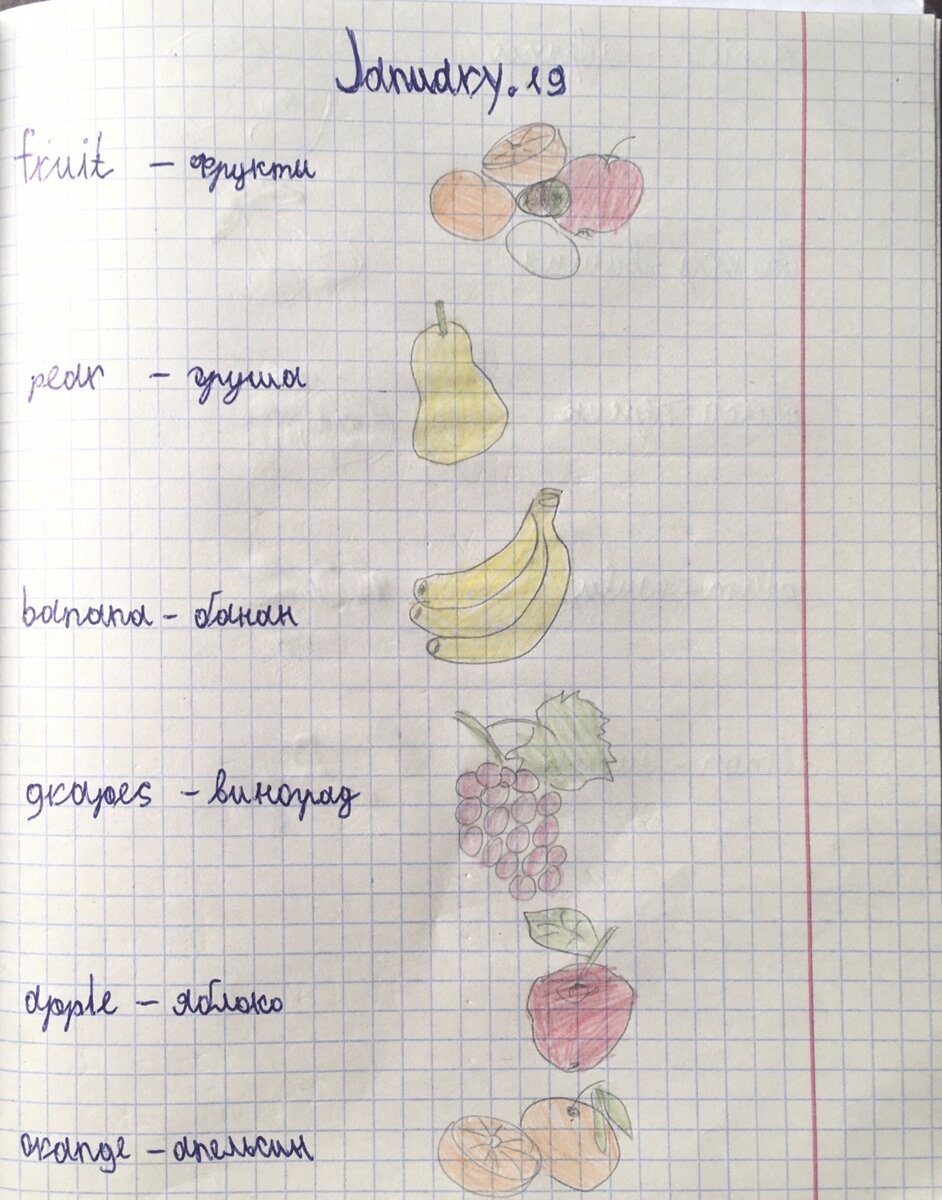 January. 19
fruit - фрукти
pear - груша
banana - банан
grapes - виноград
apple - яблоко
orange - апельсин